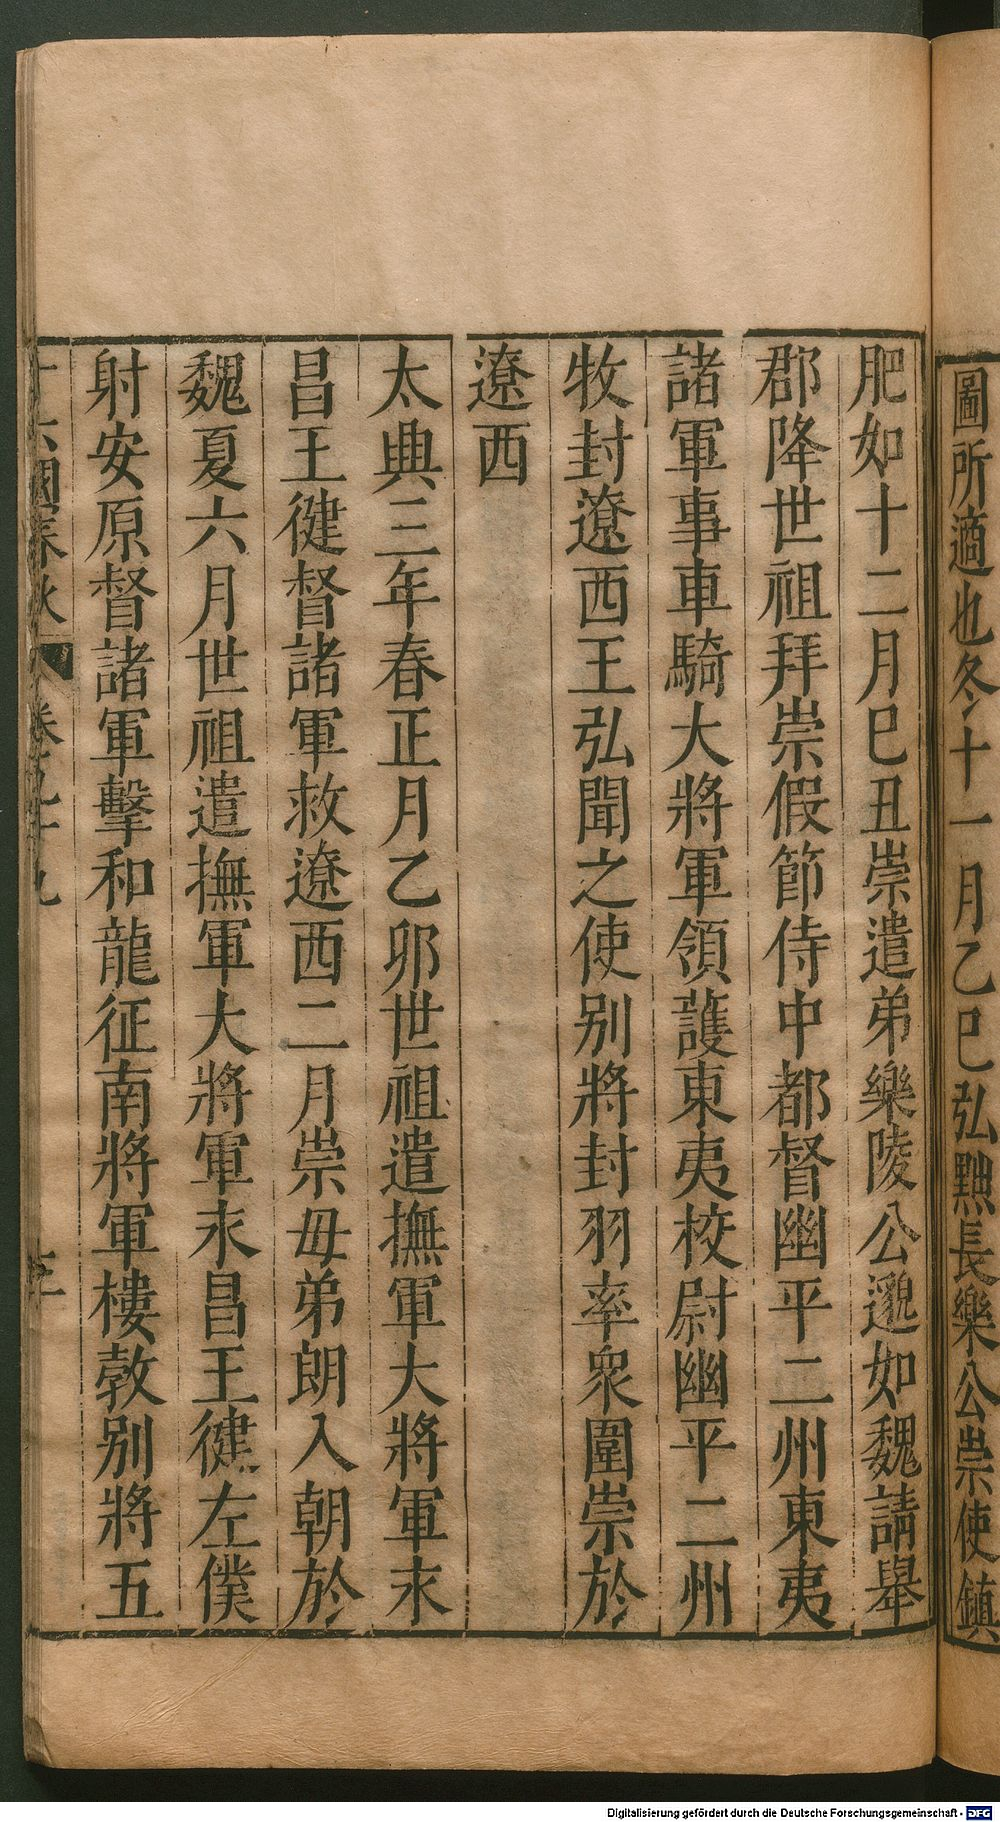 圖所適也冬十一月乙巳弘黜長樂公崇使鎮
肥如十二月巳丑崇遣弟樂陵公邈如魏請舉
郡降世祖拜崇假節侍中都督幽平二州東夷
諸軍事車騎大將軍領護東夷校尉幽平二州
牧封遼西王弘聞之使别將封羽率衆圍崇於
遼西
太興三年春正月乙卯世祖遣撫軍大將軍永
昌王健督諸軍救遼西二月崇毋弟朗入朝於
魏夏六月世祖遣撫軍大將軍永昌王健左僕
射安原督諸軍擊和龍征南將軍樓敦别將五
十六國春秋 卷九十九 三
Digitalisierung gefördert durch die Deutsche Forschungsgemeinschaft - DFG